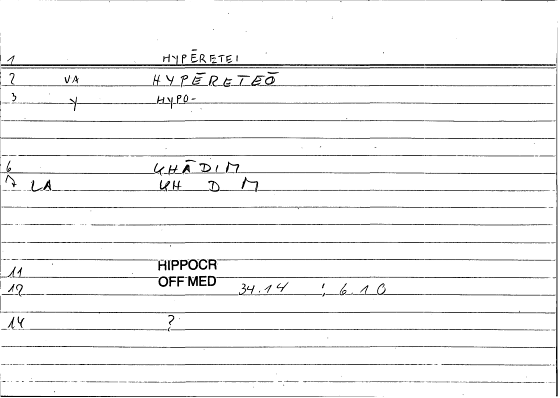 1 HYPĒRETEI
2 VA HYPĒRETEŌ
3 Y HYPO-
6 KHĀDIM
7 LA KH D M
11 HIPPOCR
12 OFF MED 34.14 ; 6.10
14 ?